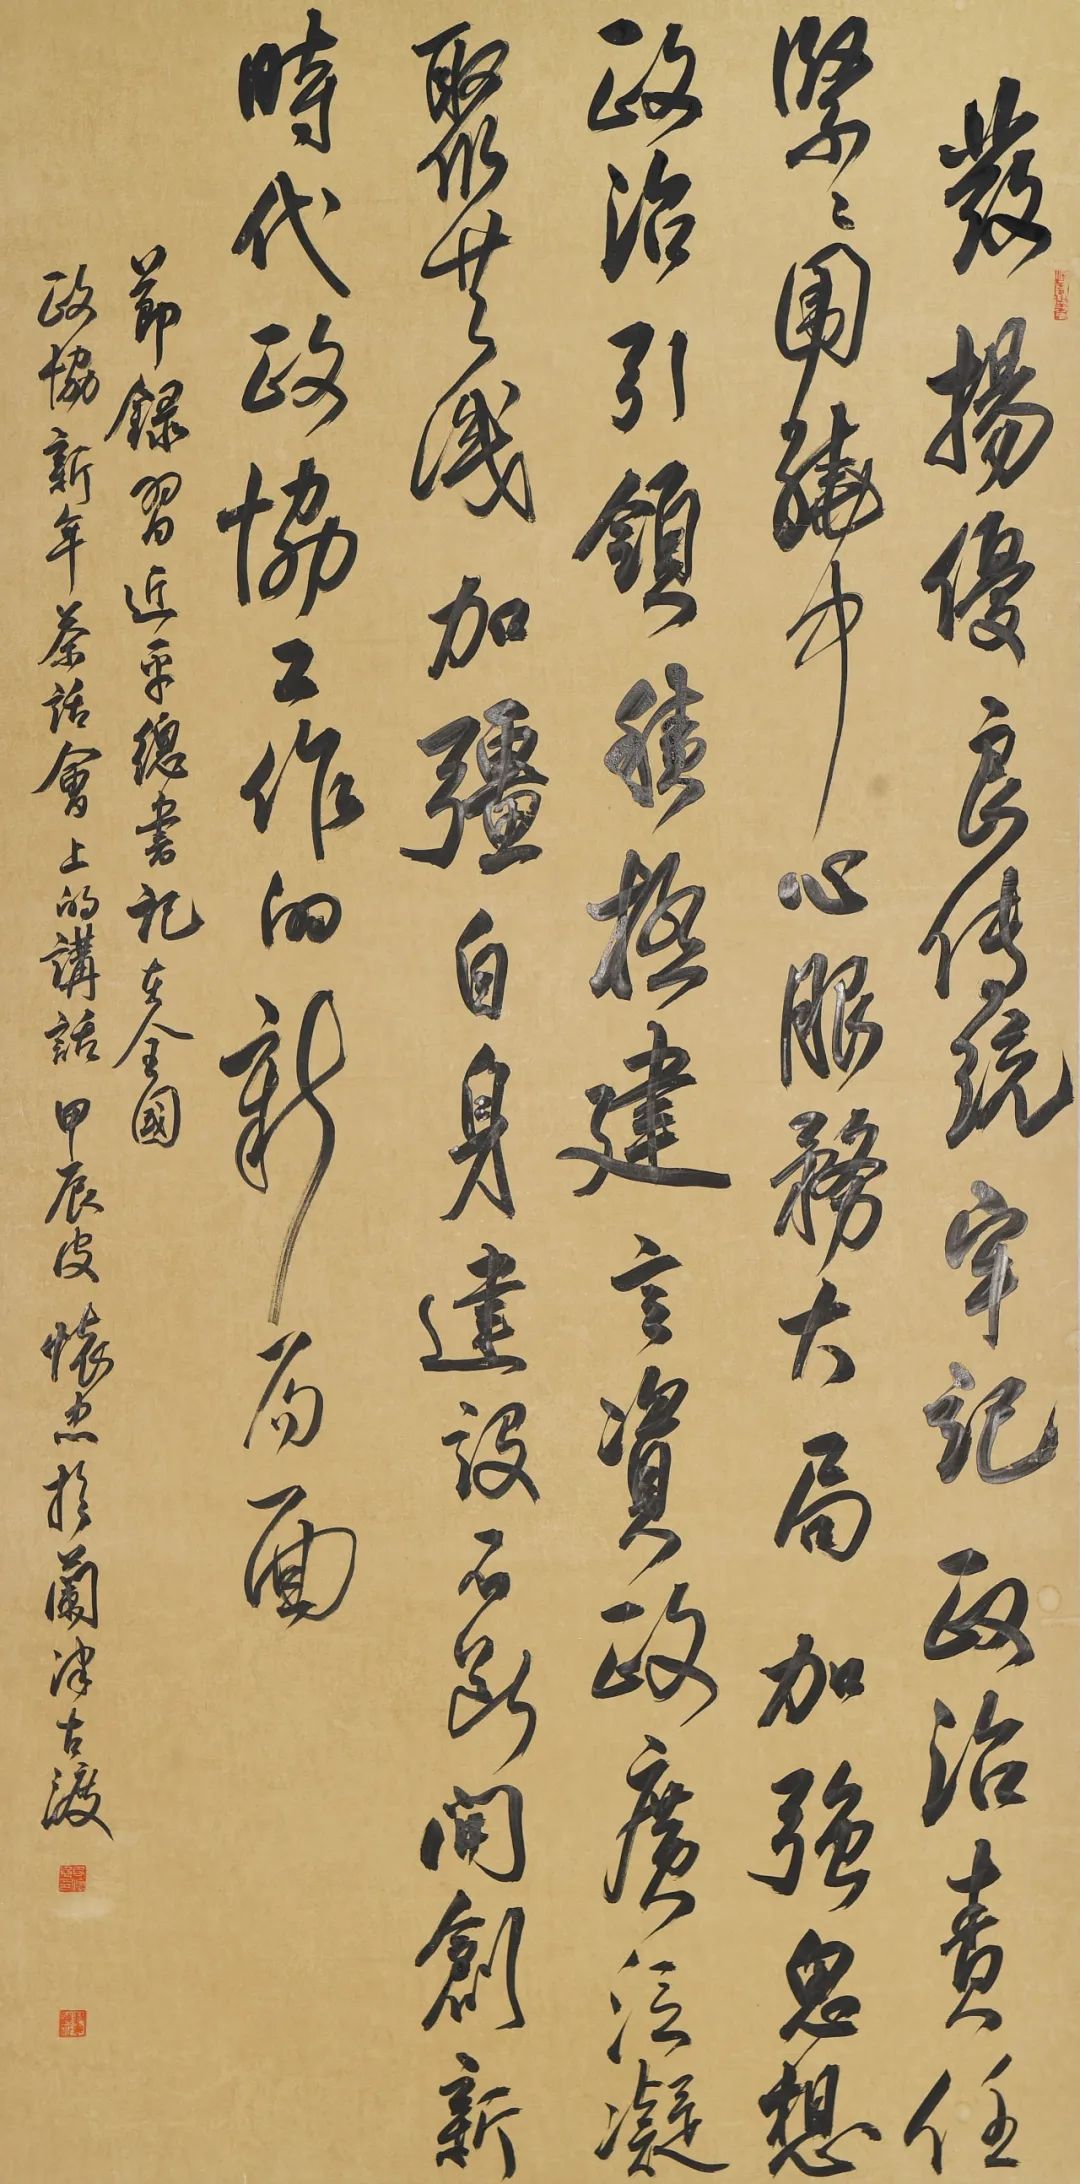 發揚優良傳統牢記政治責任
緊〻圍繞中心服務大局加強思想
政治引領積極建言資政廣泛凝
聚共識加彊自身建設不斷開創新
時代政協工作的新局面
節錄習近平總書記在全國
政協新年茶話會上的講話甲辰皮懷忠於蘭津古渡